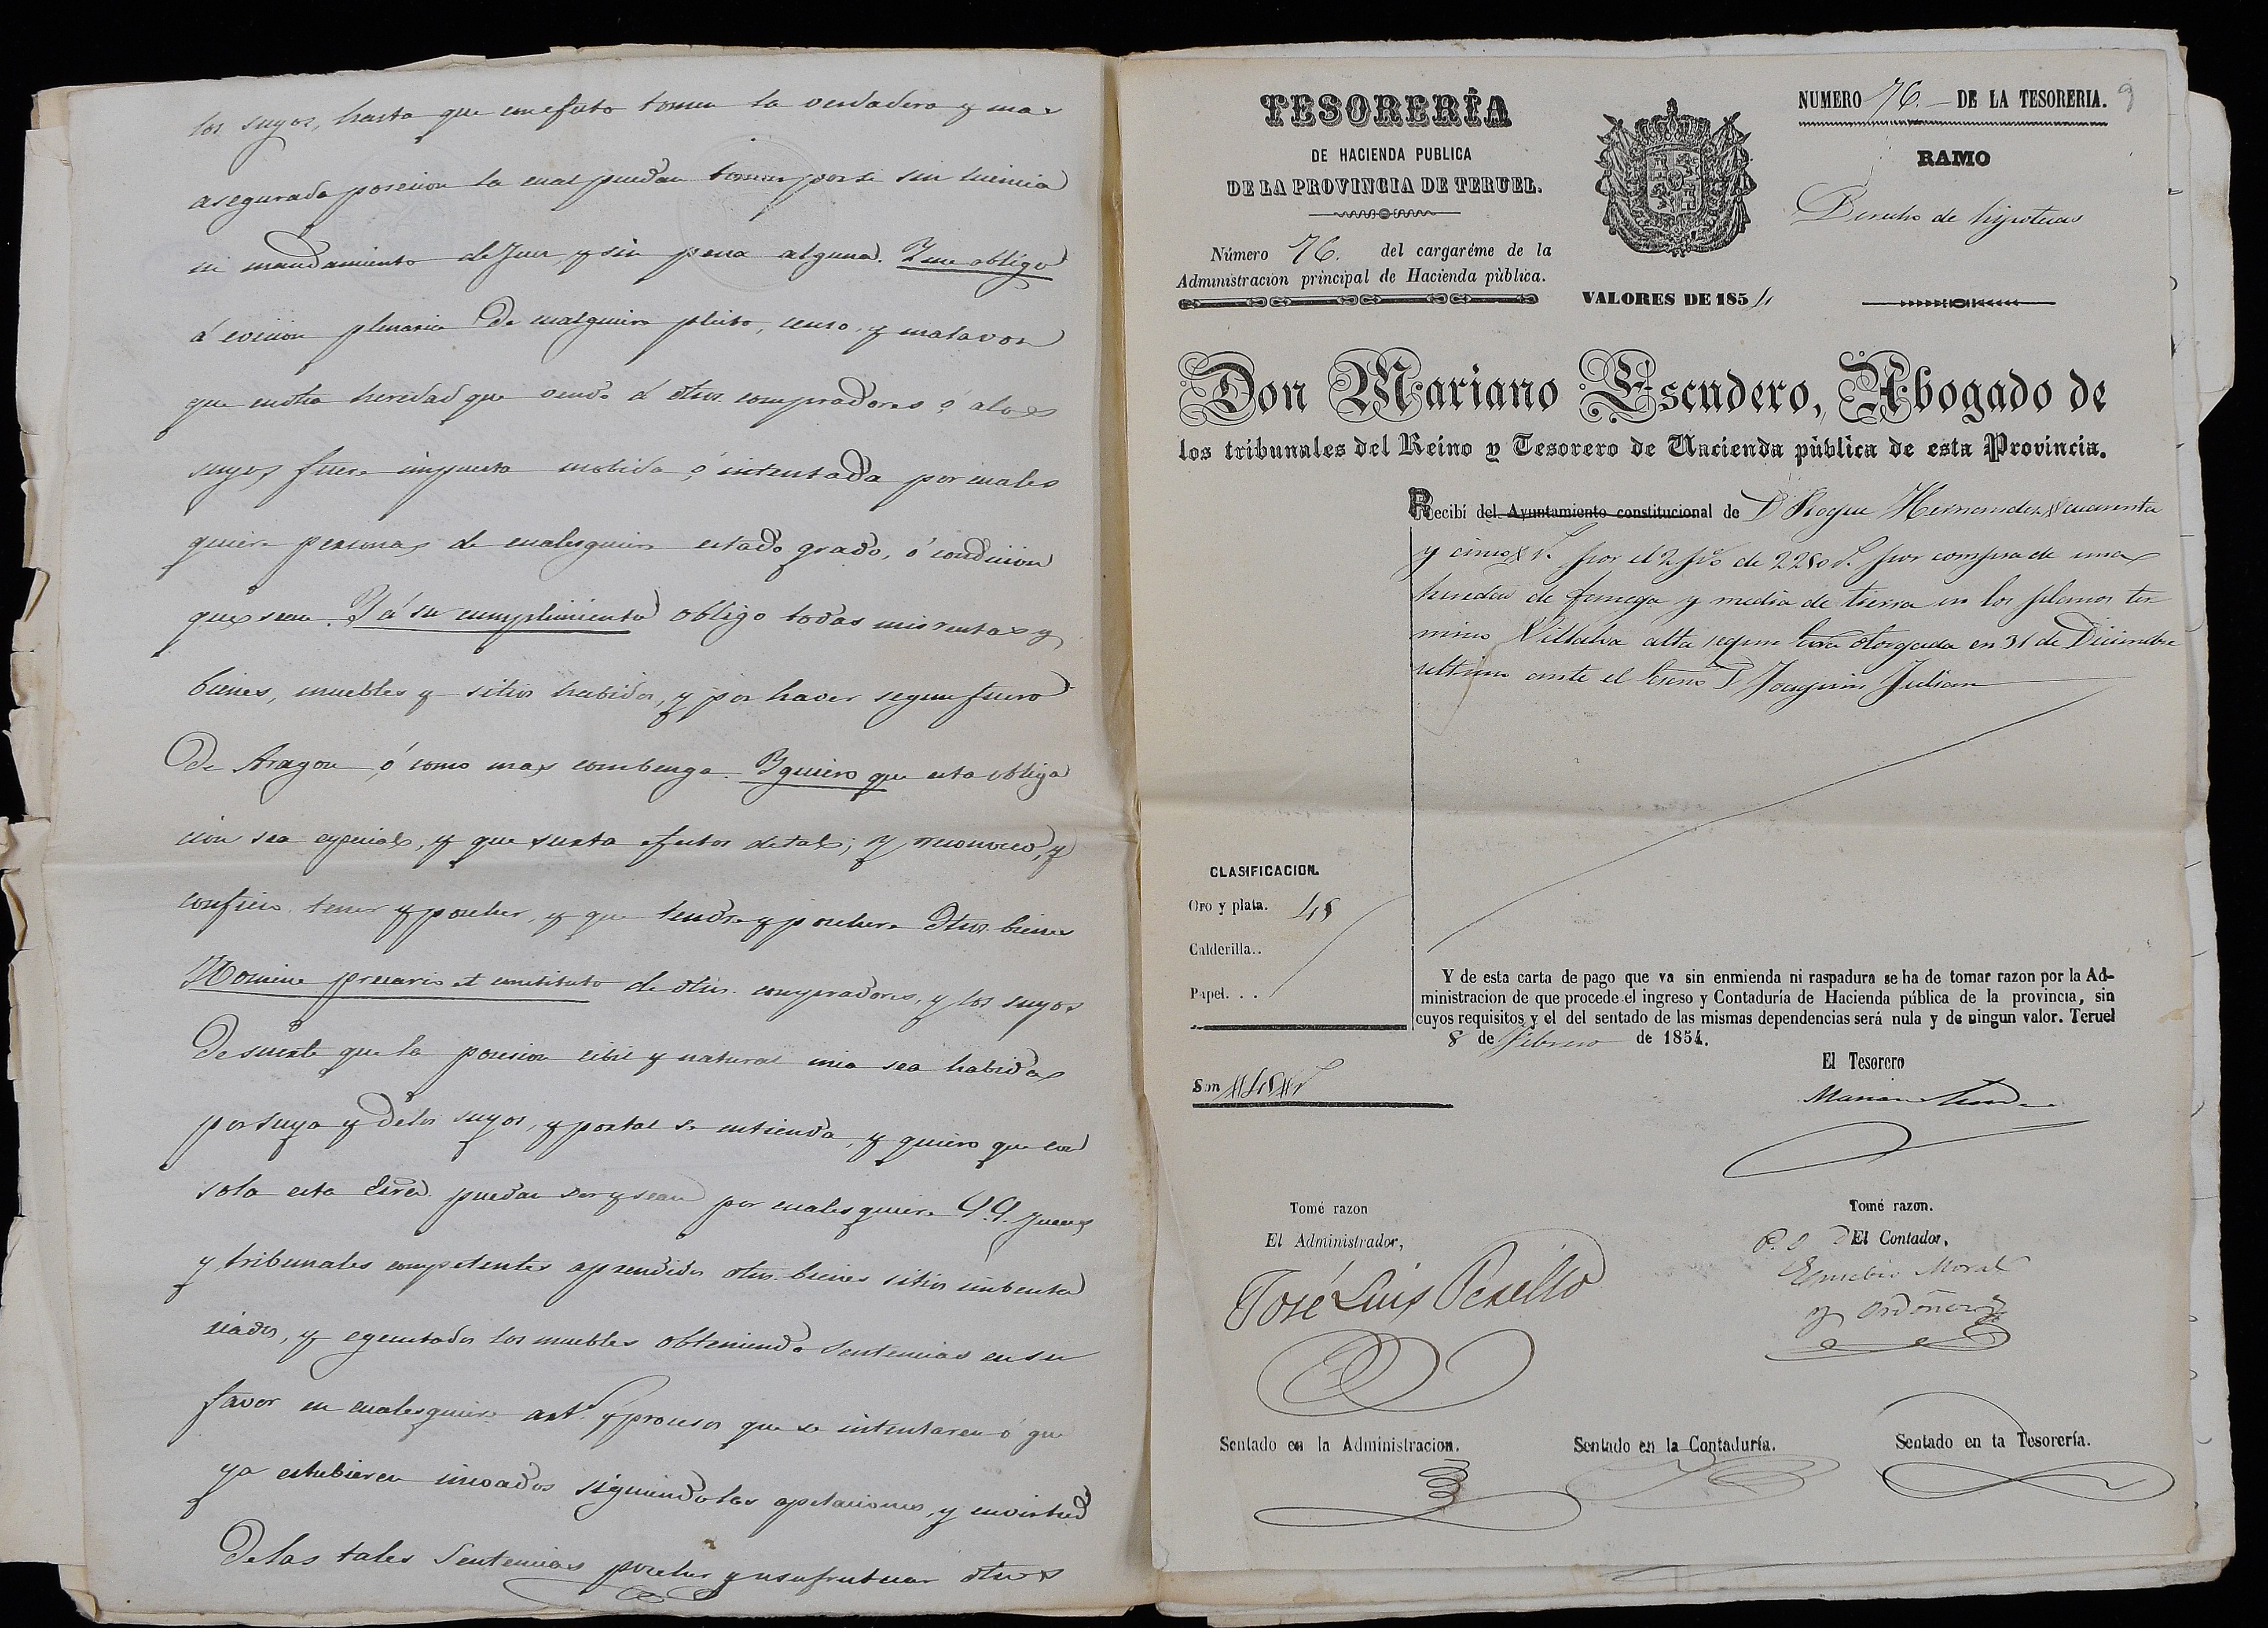 los suyos, hasta que en efecto tomen la verdadera y mas
asegurada posesion la cual puedan tomar por si sin licencia
ni mandamiento de Juez, y sin pena alguna. Y me obligo
á eviccion plenaria de cualquiera pleito, censo, y mala voz
que en dha heredad que vendo á dhos. compradores, ó a los
suyos fuere impuesta mobida, ó intentada por cuales
quiera personas de cualesquiera estado grado, ó condicion
que sean. Y á su cumplimiento obligo todas mis rentas y
bienes, muebles y sitios habidos, y por haver segun fuero
de Aragon ó como mas combenga. Y quiero que esta obliga
cion sea especial, y que surta efectos de tal; y reconozco, y
confieso tener y poseher, y que tendre y posehere dhos. bienes
Nomine precario et constituto de dhos. compradores, y los suyos
de suerte que la posesion cibil y natural mia sea habida
por suya y de los suyos, y por tal se entienda, y quiero que con
sola esta Escra. puedan ser y sean por cualesquiera S.S. Jueces
y tribunales competentes aprendidos dhos. bienes sitios imbenta
riados, y egecutados los muebles obteniendo Sentencias en su
favor en cualesquiera arts. y procesos que se intentaren ó que
ya estubieren incoados siguiendo las apelaciones, y en virtud
de las tales Sentencias poseher y usufructuar dhos
TESORERÍA
DE HACIENDA PUBLICA
DE LA PROVINCIA DE TERUEL.
Número 76. del cargaréme de la
Administracion principal de Hacienda pùblica.
VALORES DE 1854
NUMERO 76. DE LA TESORERIA.
9
RAMO
Derecho de hipotecas
Don Mariano Escudero, Abogado de
los tribunales del Reino y Tesorero de Hacienda pùblica de esta Provincia.
Recibí del Ayuntamiento constitucional de D Roque Hernandez cuarenta
y cinco r.s por el 2 p% de 2250 r.s por compra de una
heredad de fanega y media de tierra en los planos ter
mino Villalva alta segun escra otorgada en 31 de Diciembre
ultimo ante el Escno D Joaquin Julian
CLASIFICACION.
Oro y plata. 45
Calderilla..
Papel. . .
Y de esta carta de pago que va sin enmienda ni raspadura se ha de tomar razon por la Ad-
ministracion de que procede el ingreso y Contaduría de Hacienda pública de la provincia, sin
cuyos requisitos y el del sentado de las mismas dependencias será nula y de ningun valor. Teruel
8 de Febrero de 1854.
Son #45# r.s
El Tesorero
Mariano Escudero
Tomé razon
El Administrador,
José Luis Pesello
Tomé razon.
P. O D El Contador,
Eusebio Moral
y Ordoñez
Sentado en la Administracion.
Sentado en la Contaduría.
Sentado en ta Tesorería.